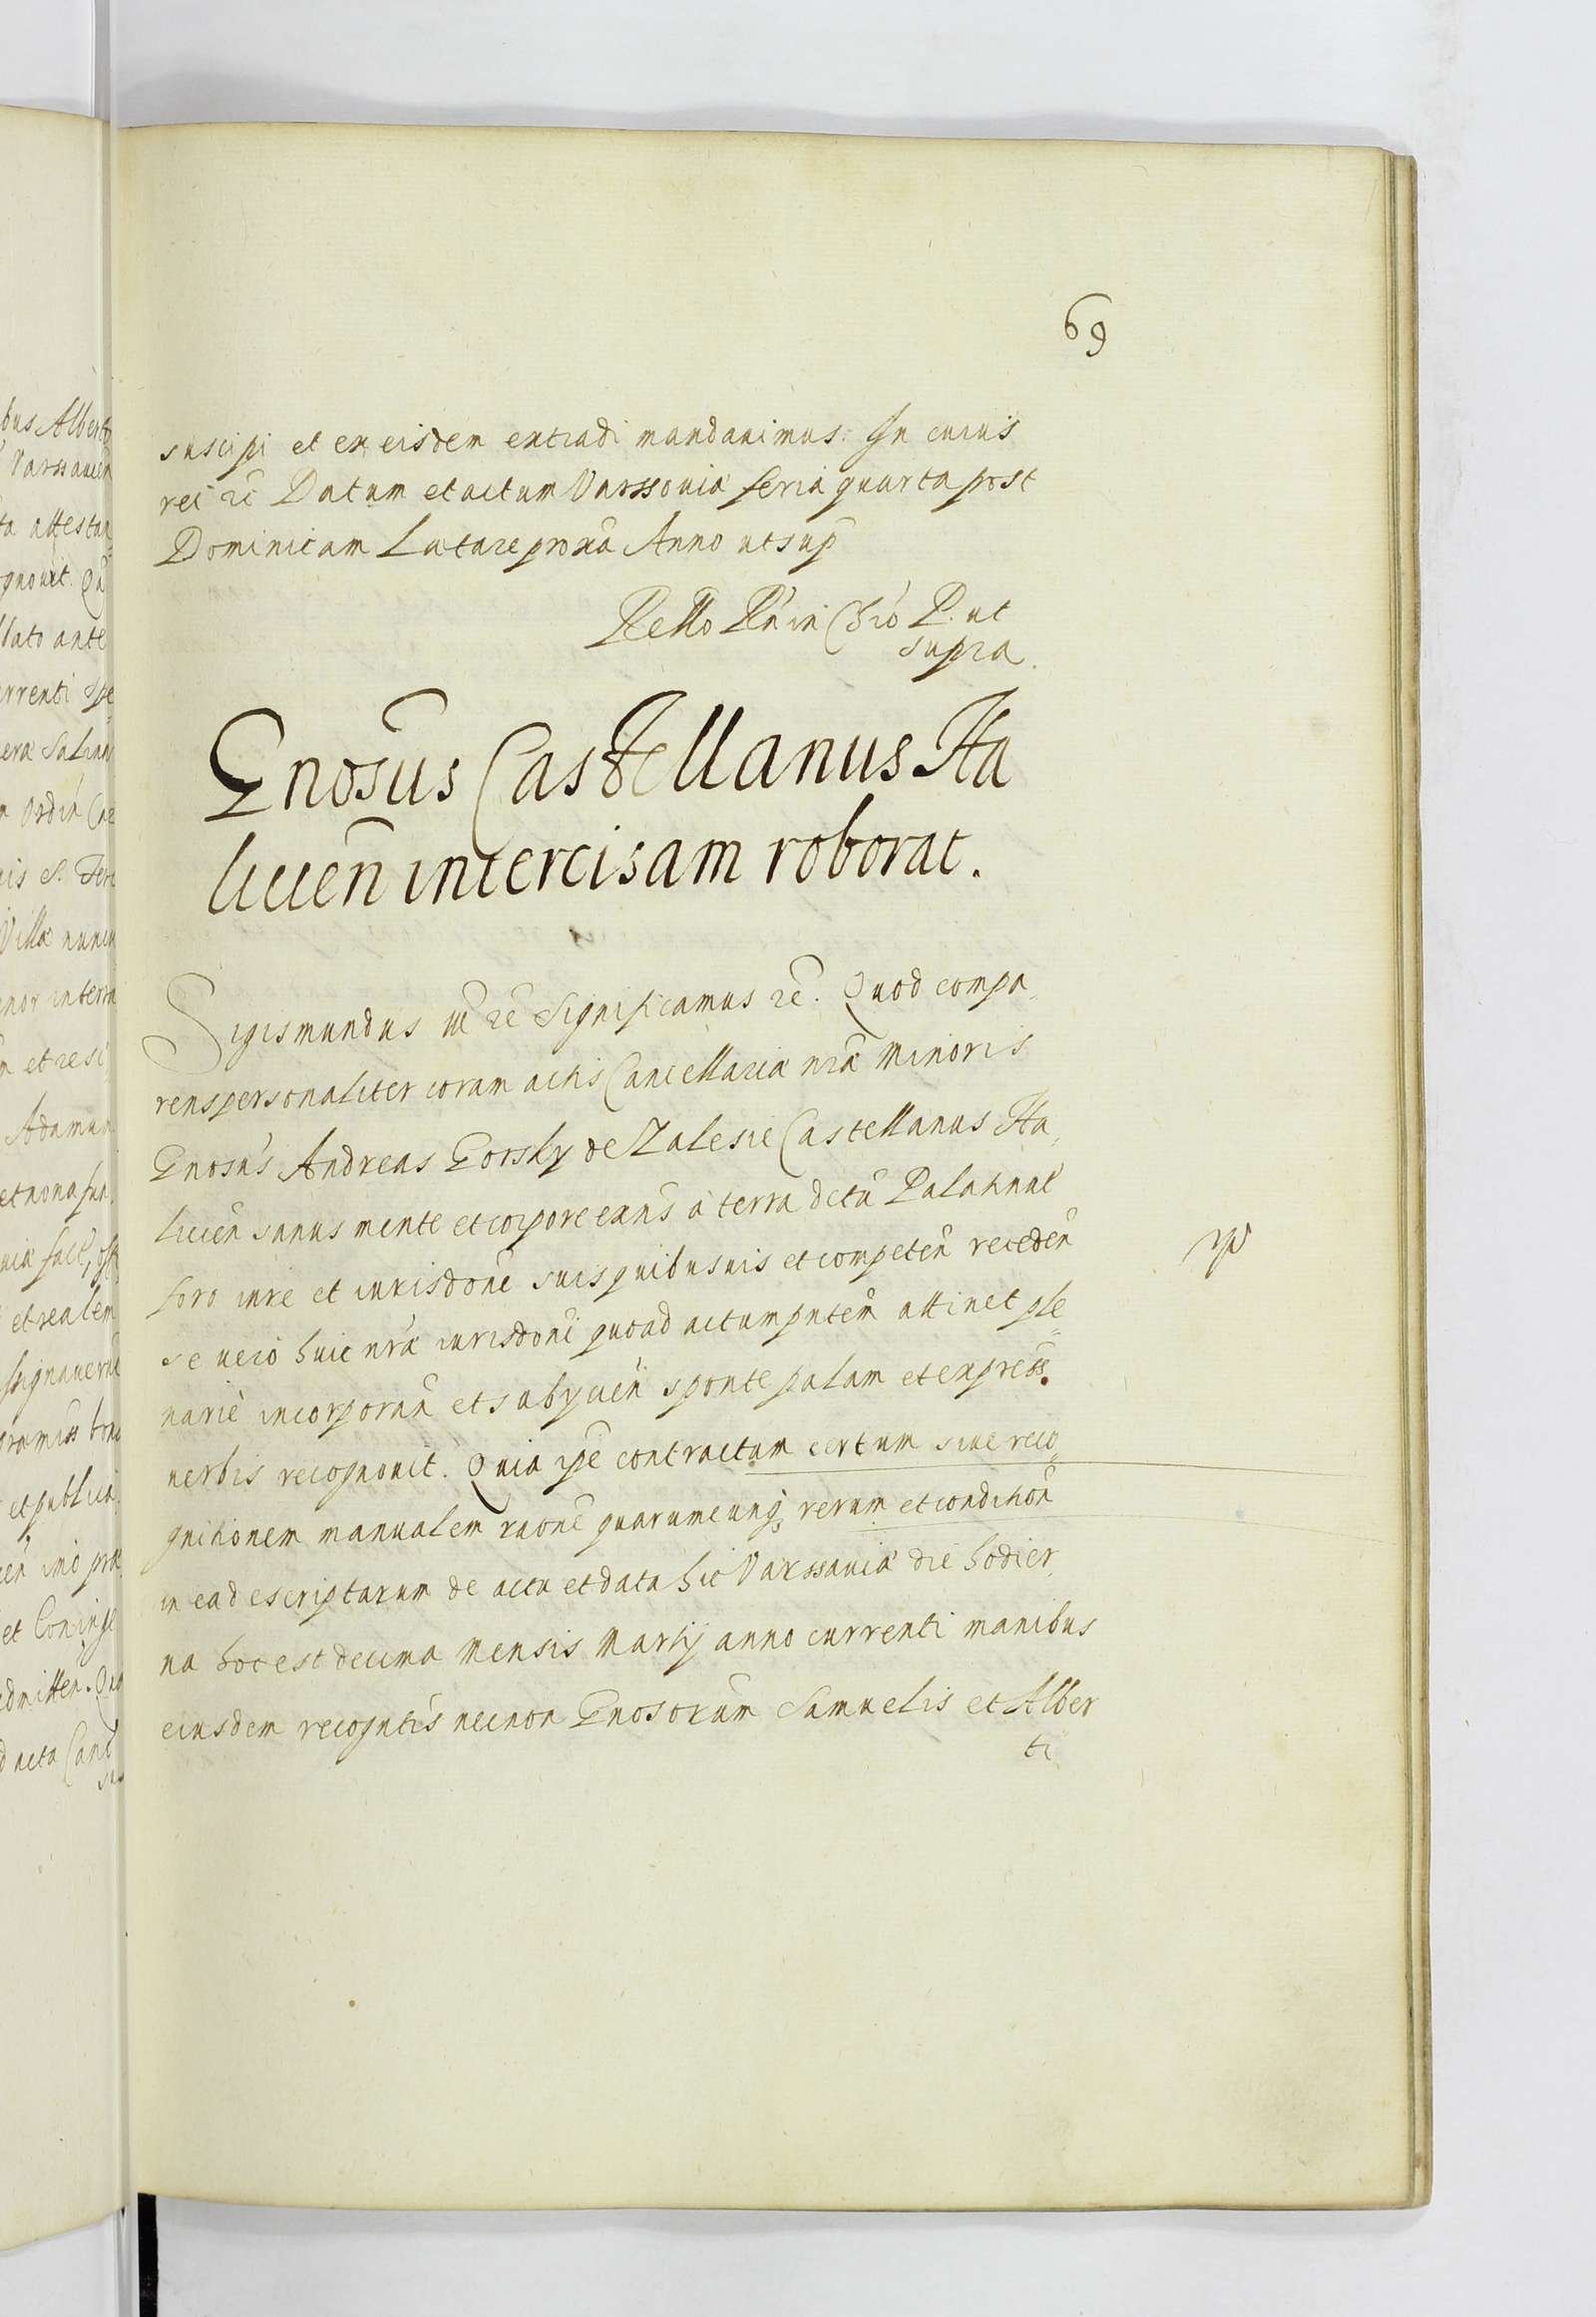 69
suscipi et ex eisdem extradi mandavimus. In cuius
rei rc̃ Datum et actum Varssoviæ feria quarta post
Dominicam Lætare proxã Anno ut sup̃
P. ut
supra.
Gnosũs Castellanus Ha
licieñ intercisam roborat.
Sigismundus III rc̃ Significamus rc̃. Quod compa„
rens personaliter coram actis Cancellariæ nr̃æ Minoris
Gnosũs Andreas Gorsky de Zalesie Castellanus Ha„
licieñ sanus mente et corpore exñs à terra dictũ Palatinat̃
foro iure et iurisdõne suis quibusvis et competeñ recedeñ
se vero huic nr̃æ iurisdõni quoad actum pñtem attinet ple„
nariè incorporañ et subijcieñ sponte palam et express.
verbis recognovit. Quia ipse contractum certum sive reco„
gnitionem manualem raõne quarumcunq; rerum et conditioñ
in ead̃ escriptarum de actu et data hic Varssaviæ die hodier„
na hoc est decima Mensis Martij anno currenti manibus
eiusdem recognt̃is necnon Gnosorũm Samuelis et Alber
ti
bus Alberto
Varssavieñ
ta attestan
gnovit. Qũ
llato ante
Adamum
et realem
et publica
et Coniuge